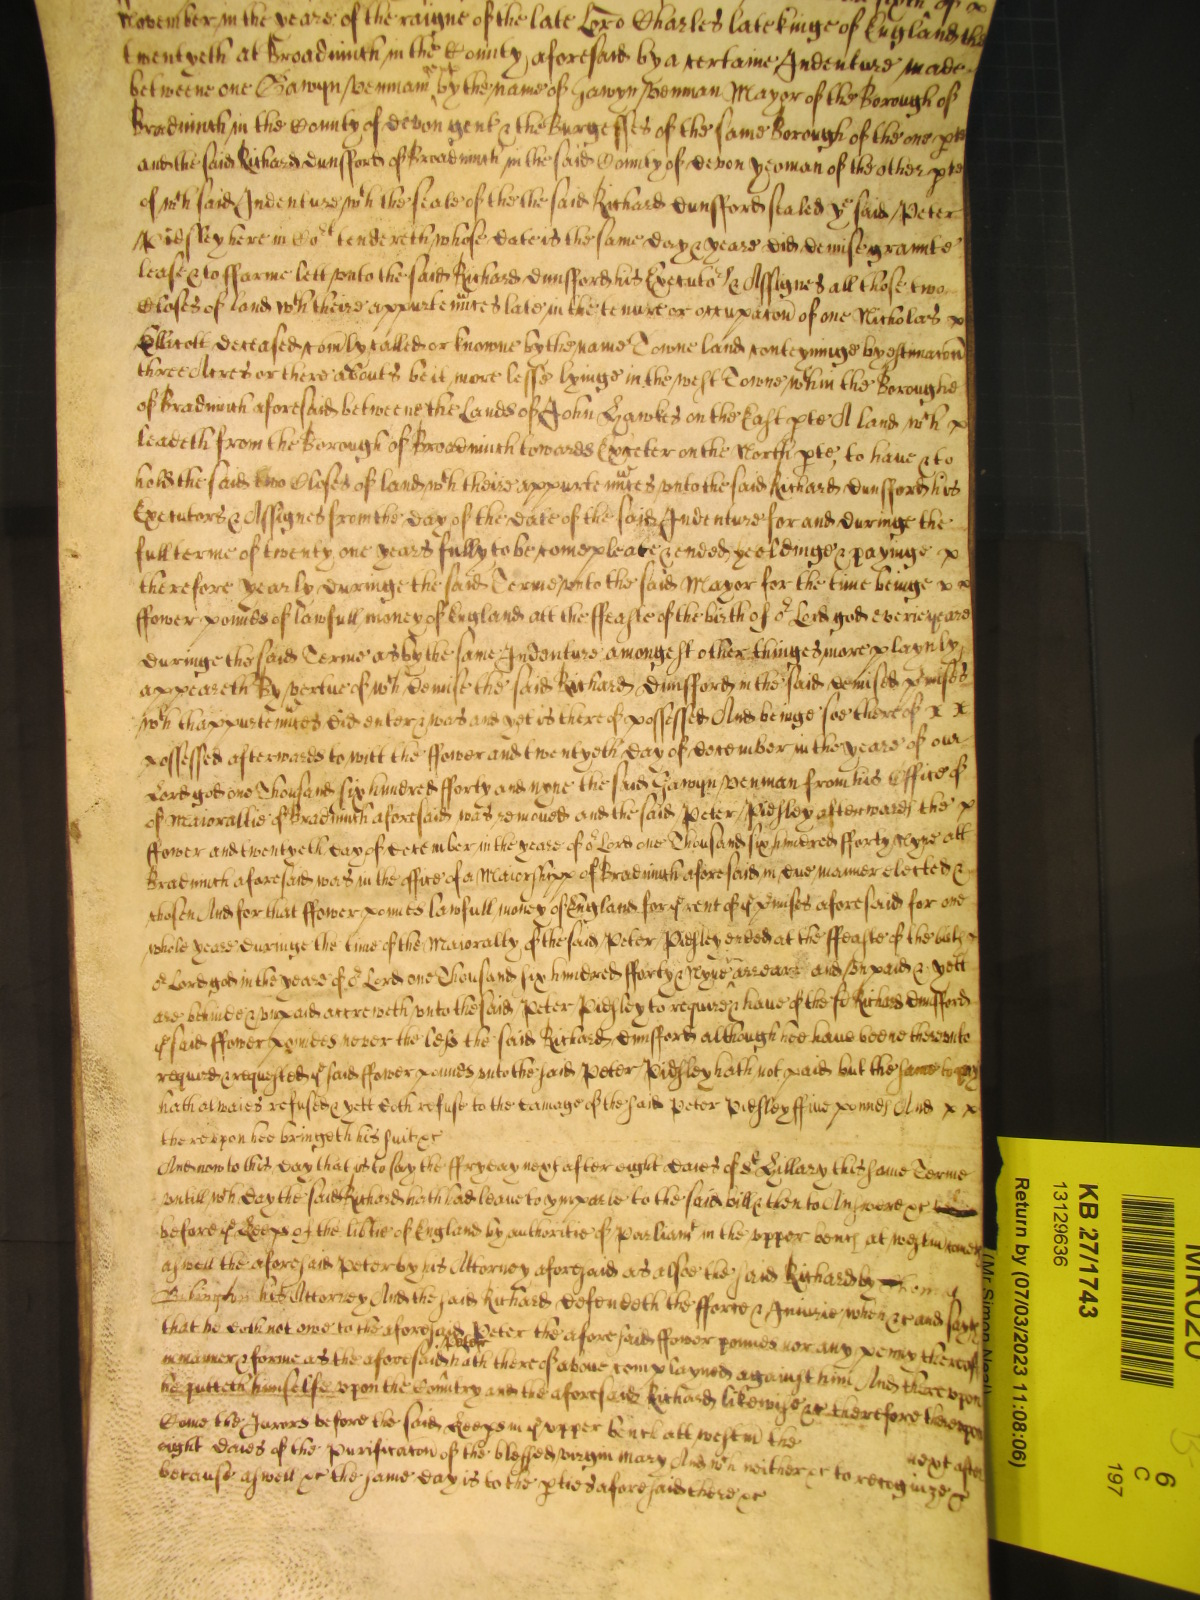 November in the yeare of the raigne of the late Lord Charles late kinge of England the
twentyeth at Bradninch in the County aforesaid by a certaine Indenture made
betweene one Gawyn Penman by the name of Gawyn Penman Mayor of the Borough of
Bradninch in the County of Devon gent & the Burgesses of the same Borough of the one pte
and the said Richard Dunsford of Broadninch in the said County of Devon yeoman of the other pte
of wch said Indenture wth the seale of the the said Richard Dunsford sealed ye said Peter
Pidsley here in Cort tendereth whose date is the same day & yeare did demise graunte
lease & to ffarme lett unto the said Richard Dunsford his Executors & Assignes all those two
Closes of land wth theire appurtennces late in the tenure or occupacon of one Nicholas x
Ellicott deceased comly called or knowne by the name Towne land conteyninge by estimacon
three Acres or there abouts be it more lesse lyinge in the west Towne wthin the Boroughe
of Bradninch aforesaid betweene the Lands of John Hawkes on the East pte A land wch x
leadeth from the Borough of Broadninch towards Exeter on the North pte, to have & to
hold the said two Closes of land wth theire appurtennces unto the said Richard Dunsford his
Executors & Assignes from the day of the date of the said Indenture for and duringe the
full terme of twenty one years fully to be compleate & ended yeeldinge & payinge x
therefore yearly duringe the said Terme unto the said Mayor for the time beinge x x
ffower pounds of lawfull money of England att the ffeaste of the birth of or Lord god everie yeare
duringe the said Terme as by the same Indenture amongest other thinges more playnly
appeareth By vertue of wch demise the said Richard Dunsford in the said demised pmises
wth thappurtennces did enter & was and yet is thereof possessed And beinge soe thereof x x
possessed afterwards to witt the ffower and twentyeth day of december in the yeare of our
Lord god one Thousand six hundred fforty and nyne the said Gawyn Penman from his Office of
of Maiorallie of Bradninch aforesaid was removed and the said Peter Pidsley afterwards the x
ffower and twentyeth day of december in the yeare of or Lord one Thousand six hundred fforty Nyne att
Bradninch aforesaid was in the office of a Maiorshipp of Bradninch aforesaid in due manner elected &
chosen And for that ffower pounds lawfull money of England for ye rent of ye pmises aforesaid for one
whole yeare duringe the time of the Maioralty of the said Peter Pidsley ended at the ffeaste of the birth
or Lord god in the yeare of or Lord one Thousand six hundred fforty & Nyne arreare and unpaid & yett
are behinde & unpaid accreweth unto the said Peter Pidsley to require & have of the sd Richard Dunsford
ye said ffower pounds never the less the said Richard Dunsford although hee have beene thereunto
required & requested ye said ffower pounds unto the said Peter Pidsley hath not paid but the same to pay
hath alwaies refused & yett doth refuse to the damage of the said Peter Pidsley ffive pounds And x x
thereupon hee bringeth his suit &c
And now to this day that is to say the ffryday next after eight daies of St Hillary this same Terme
untill wch day the said Richard hath had leave to imparle to the said bill & then to Answere &c
before ye Keeps of the libtie of England by authoritie of Parliamt in the upper bench at westm cometh
aswell the aforesaid Peter by his Attorney aforesaid as alsoe the said Richard by Thomas
his Attorney And the said Richard defendeth the fforce & Iniurie when &c and sayth
that he doth not owe to the aforesaid Peter the aforesaid ffower pounds nor any penny thereof
in manner & forme as the aforesaid Peter hath thereof above complayned against him And thereupon
he putteth himselfe upon the Countrey and the aforesaid Richard likewise &c therefore thereupon
Come the Jurors before the said Keeps in ye upper bench att westm the next after
eight daies of the Purificacon of the blessed virgin mary And wch neither &c to recognize &c
because aswell &c the same day is to the pties aforesaid there &c
MR020
KB 27/1743
13129636
(Mr Simon Neal)
Return by (07/03/2023 11:08:06)
6
C
197